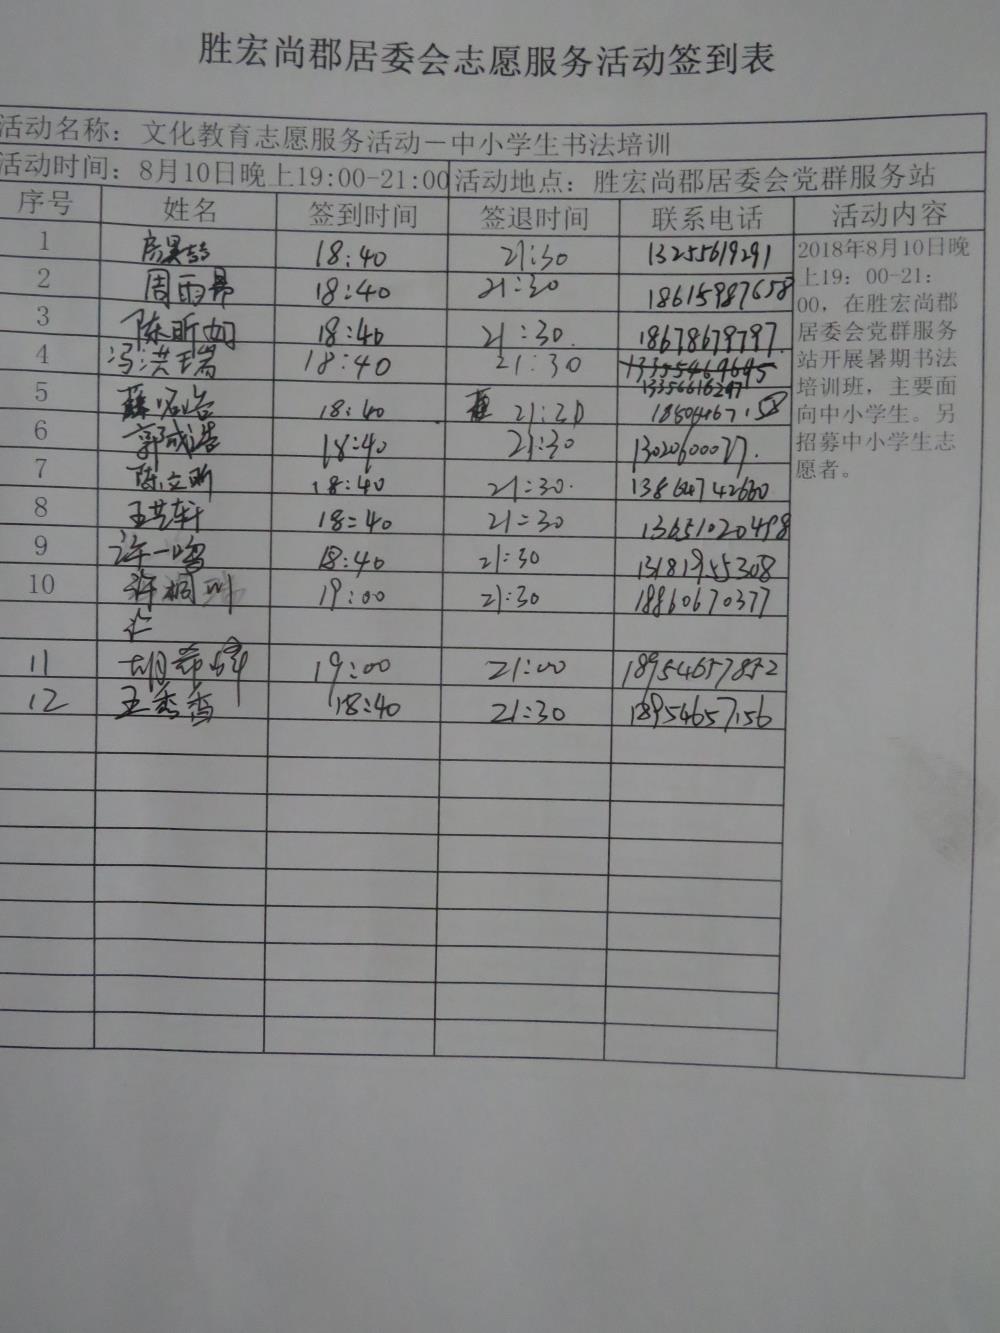 胜宏尚郡居委会志愿服务活动签到表
活动名称：文化教育志愿服务活动－中小学生书法培训
活动时间：8月10日晚上19:00-21:00 活动地点：胜宏尚郡居委会党群服务站
序号 姓名 签到时间 签退时间 联系电话 活动内容
1 18:40 21:30 13255619291
2 周雨 18:40 21:30 18615987658
3 陈昕 18:40 21:30. 18678679797
4 冯洪瑞 18:40 21:30
5 18:40 21:30
6 郭成浩 18:40 21:30
7 陈文昕 18:40 21:30. 13864742660
8 王艺轩 18:40 21:30 13651020498
9 许一鸣 18:40 21:30 13181955308
10 许桐 19:00 21:30 18860670377
11 胡希 19:00 21:00 18954657852
12 王秀香 18:40 21:30 18954657156
2018年8月10日晚
上19：00-21：
00，在胜宏尚郡
居委会党群服务
站开展暑期书法
培训班，主要面
向中小学生。另
招募中小学生志
愿者。